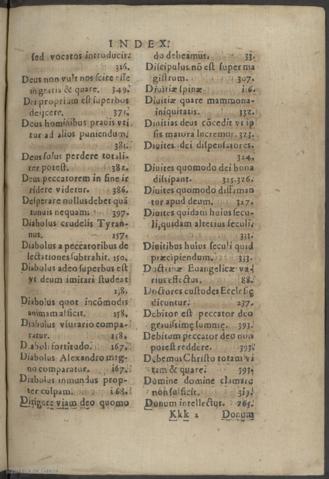 INDEX.
sed vocatos introducit:
316.
Deus non vult nos scire esse
in gratia & quare. 349.
Dei proprium est superbos
deijcere. 371.
Deus hominibus prauis vti
tur ad alios puniendum.
381.
Deus solus perdere totali-
ter potest. 382.
Deus peccatorem in fine ir
ridere videtur. 386.
Desperare nullus debet quã
tunuis nequam. 397.
Diabolus crudelis Tyran-
nus. 157.
Diabolus a peccatoribus de
lectationes subtrahit. 150.
Diabolus adeo superbus est
vt deum imitari studeat
Diabolus quot incõmodis
animam afficit. 158.
Diabolus viurario compa-
ratur.
Diaboli fortitudo. 167.
Diabolus Alexandro mag-
no comparatur. 167.
Diabolus inmundus prop-
ter culpam. 168.
Diligere viam deo quomo
do debeamus. 33.
Discipulus nõ est super ma
gistrum. 307.
Diuitiæ spinæ
Diuitiæ quare mammona-
iniquitatis.
Diuitias deus cõcedit vt ip
sis maiora lucremur. 323.
Diuites dei dispensatores.
324.
Diuites quomodo dei bona
dissipant. 325.326.
Diuites quomodo diffaman
tur apud deum. 327.
Diuites quidam huius secu-
li, quidam alterius seculi.
Diuitibus huius seculi quid
præcipiendum. 313.
Doctrinæ Euangelicæ va-
rius effectus. 88.
Doctores custodes Ecclesiæ
dicuntur. 237.
Debitor est peccator deo
grauissimæ summæ. 393.
Debitum peccator deo non
potest reddere. 393.
Debemus Christo totam vi
tam & quare. 393.
Domine domine clamare
non sufficit.
Donum intellectus. 265.
Kkk 2 Donum